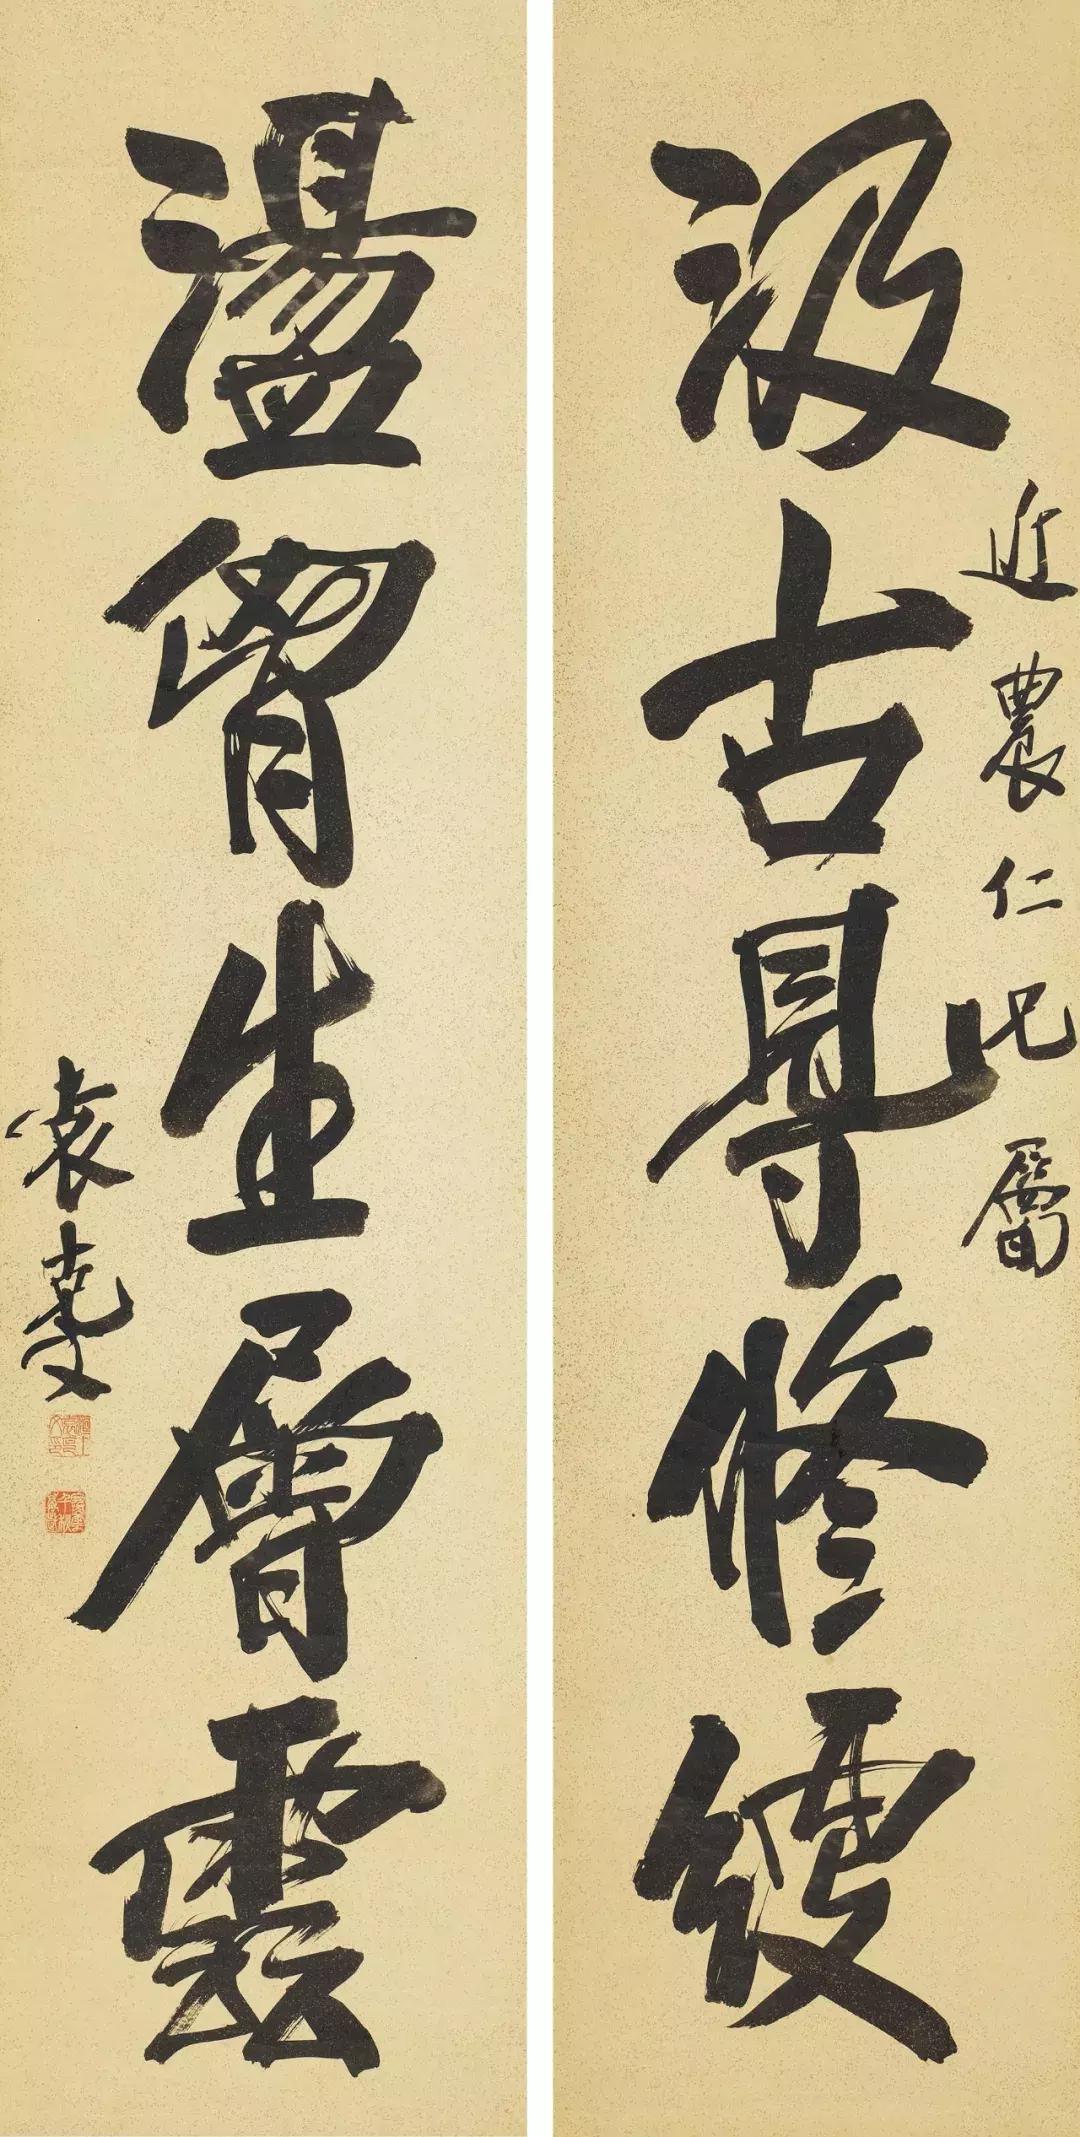 汲古得修綆
近農仁兄屬
盪胷生層雲
袁克文